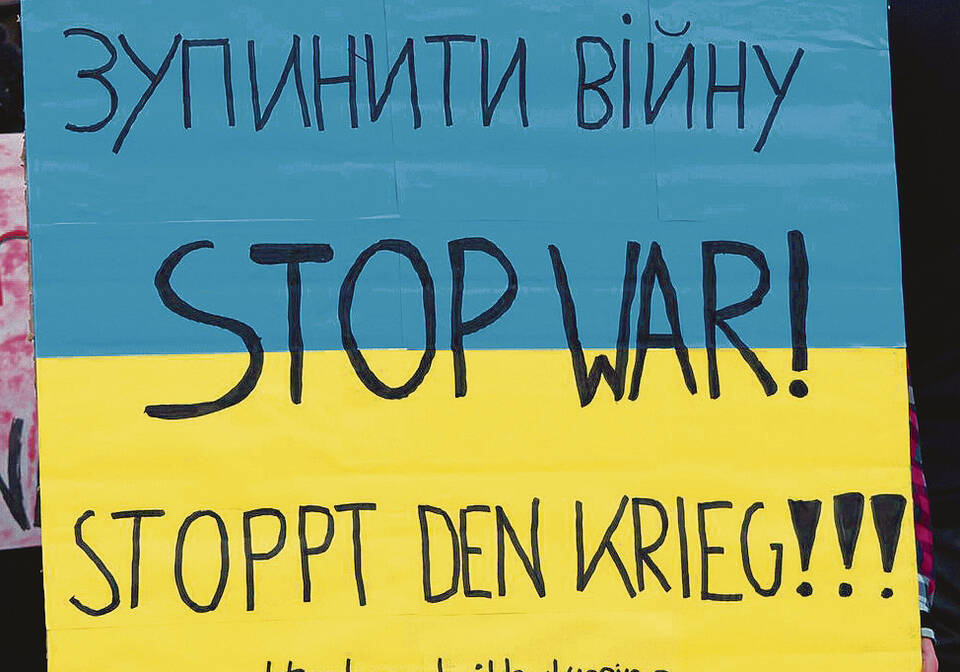 ЗУПИНИТИ ВІЙНУ
STOP WAR!
STOPPT DEN KRIEG!!!